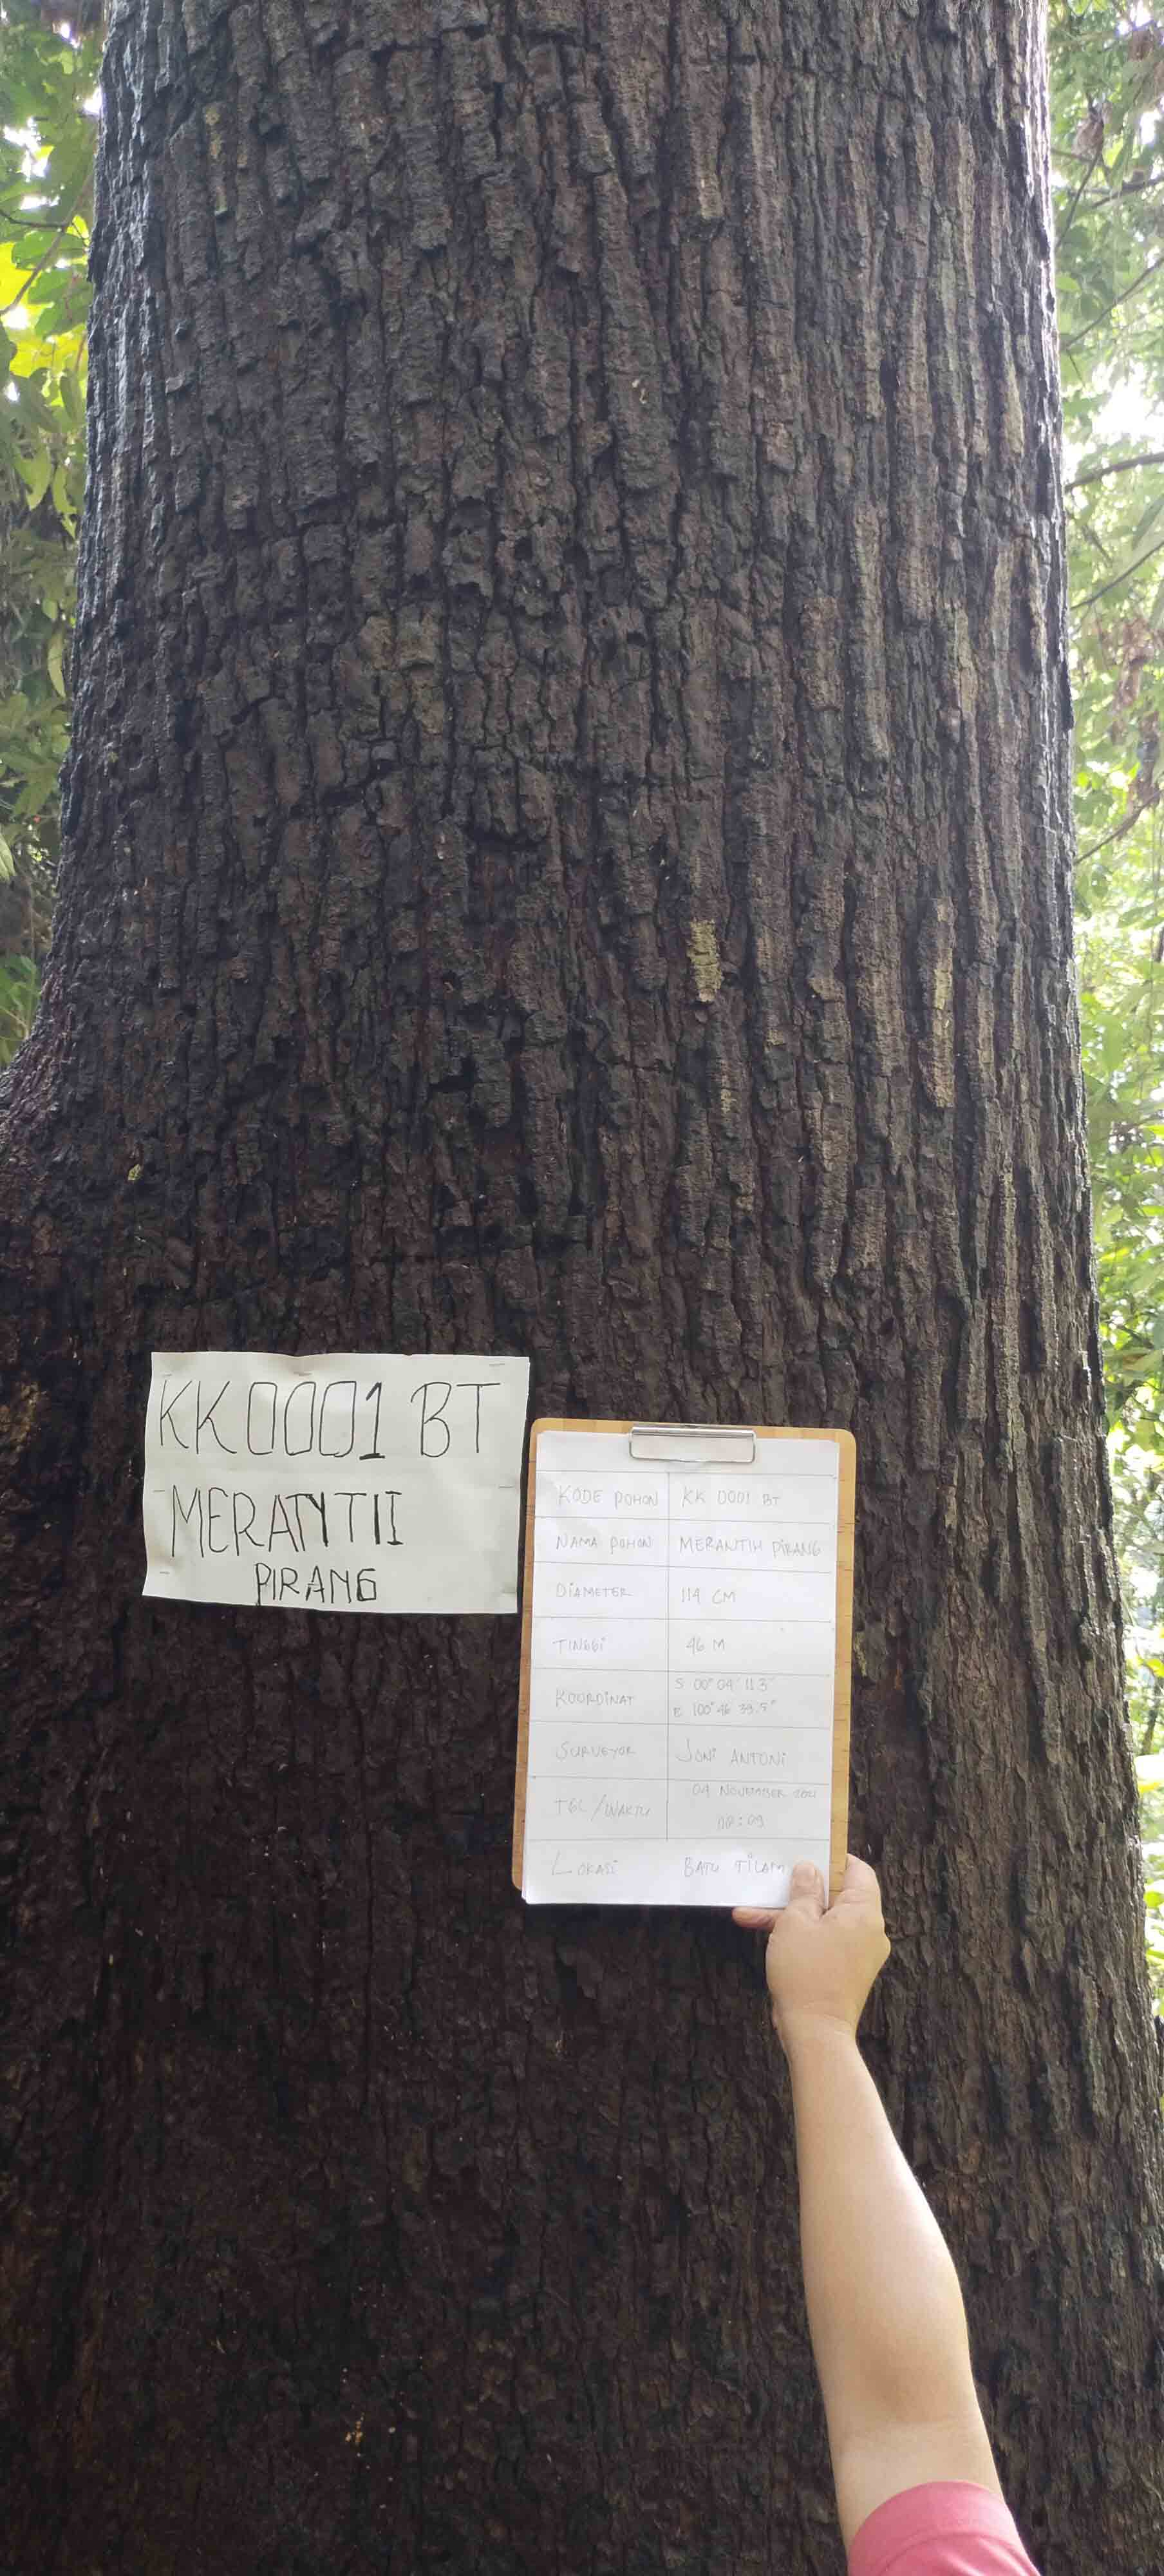 KK 0001 BT
MERANTII
PIRANG
KODE POHON KK 0001 BT
NAMA POHON MERANTIH PIRANG
DIAMETER 114 CM
TINGGI 46 M
KOORDINAT S 00° 04' 11.3"
E 100° 46' 39.5"
SURVEYOR JONI ANTONI
TGL/WAKTU 04 NOVEMBER 2021
LOKASI BATU TILAM